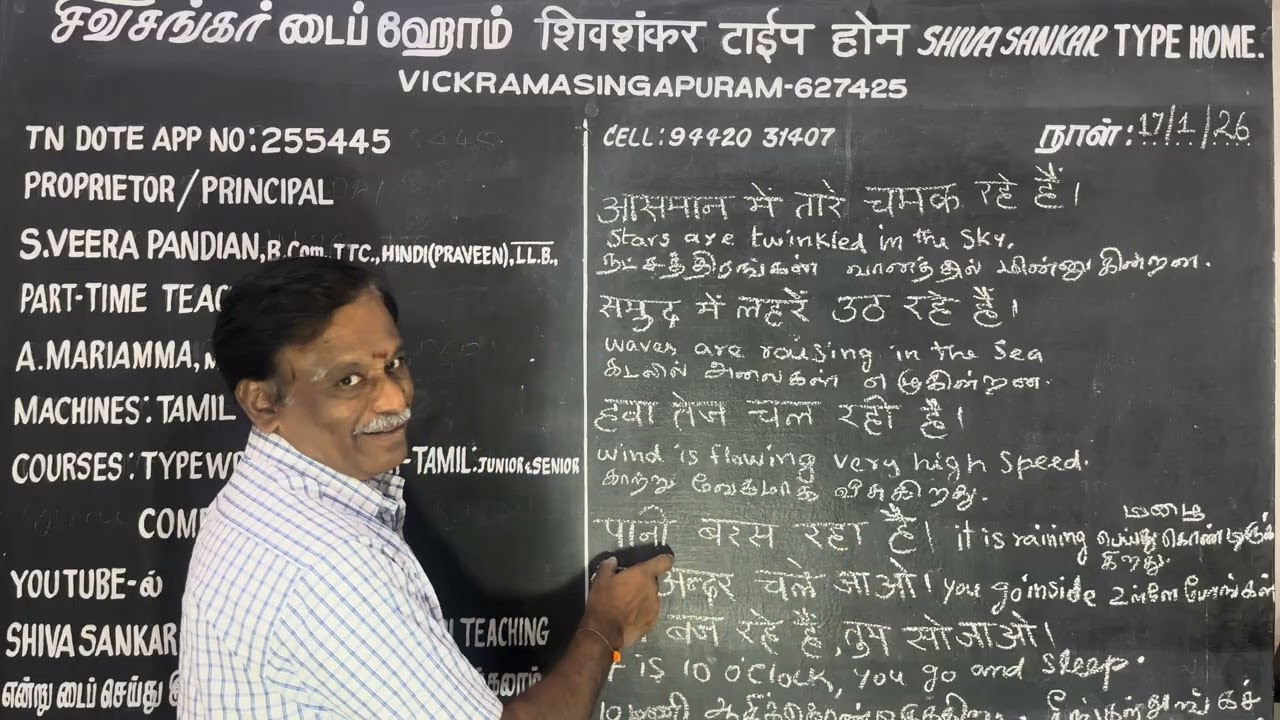 சிவசங்கர் டைப் ஹோம் शिवशंकर टाईप होम SHIVA SANKAR TYPE HOME.
VICKRAMASINGAPURAM-627425
TN DOTE APP NO: 255445
PROPRIETOR/PRINCIPAL
S.VEERA PANDIAN, B.Com., TTC., HINDI(PRAVEEN), LL.B.,
PART-TIME
A.MARIAMMA,
MACHINES: TAMIL
COURSES: -TAMIL: JUNIOR & SENIOR
YOUTUBE-ல்
SHIVA SANKAR TEACHING
என்று டைப் செய்து
CELL: 94420 31407
நாள்: 17/1/26
आसमान में तारे चमक रहे हैं।
Stars are twinkled in the Sky.
நட்சத்திரங்கள் வானத்தில் மின்னுகின்றன.
समुद्र में लहरें उठ रहे हैं।
waves are raising in the Sea
கடலில் அலைகள் எழுகின்றன.
हवा तेज चल रही है।
wind is flawing very high Speed.
காற்று வேகமாக வீசுகிறது.
पानी बरस रहा है। it is raining மழை பெய்து கொண்டிருக்கிறது.
अन्दर चले जाओ। you go inside உள்ளே போங்கள்
बज रहे हैं, तुम सो जाओ।
is 10 o'clock, you go and sleep.
10 மணி